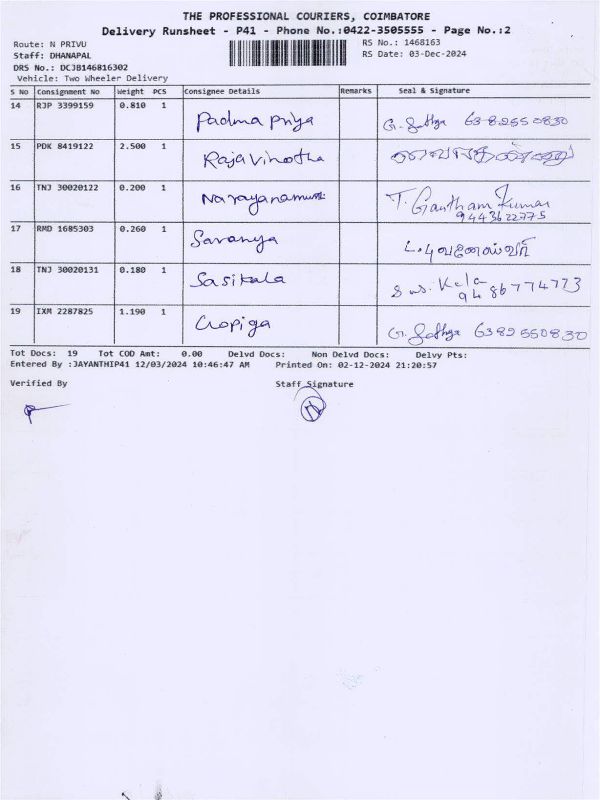 THE PROFESSIONAL COURIERS, COIMBATORE
Delivery Runsheet - P41 - Phone No.:0422-3505555 - Page No.:2
Route: N PRIVU
RS No.: 1468163
Staff: DHANAPAL
RS Date: 03-Dec-2024
DRS No.: DCJB146816302
Vehicle: Two Wheeler Delivery
S No Consignment No Weight PCS Consignee Details Remarks Seal & Signature
14 RJP 3399159 0.810 1 Padma Priya G. Sathya 6382550830
15 PDK 8419122 2.500 1 Rajavinotha
16 TNJ 30020122 0.200 1 Narayanamurthi T. Gautham Kumar
9443622775
17 RMD 1685303 0.260 1 Saranya
18 TNJ 30020131 0.180 1 Sasikala Kala
9486774773
19 IXM 2287825 1.190 1 Gopiga G. Sathya 6382550830
Tot Docs: 19 Tot COD Amt: 0.00 Delvd Docs: Non Delvd Docs: Delvy Pts:
Entered By :JAYANTHIP41 12/03/2024 10:46:47 AM Printed On: 02-12-2024 21:20:57
Verified By Staff Signature